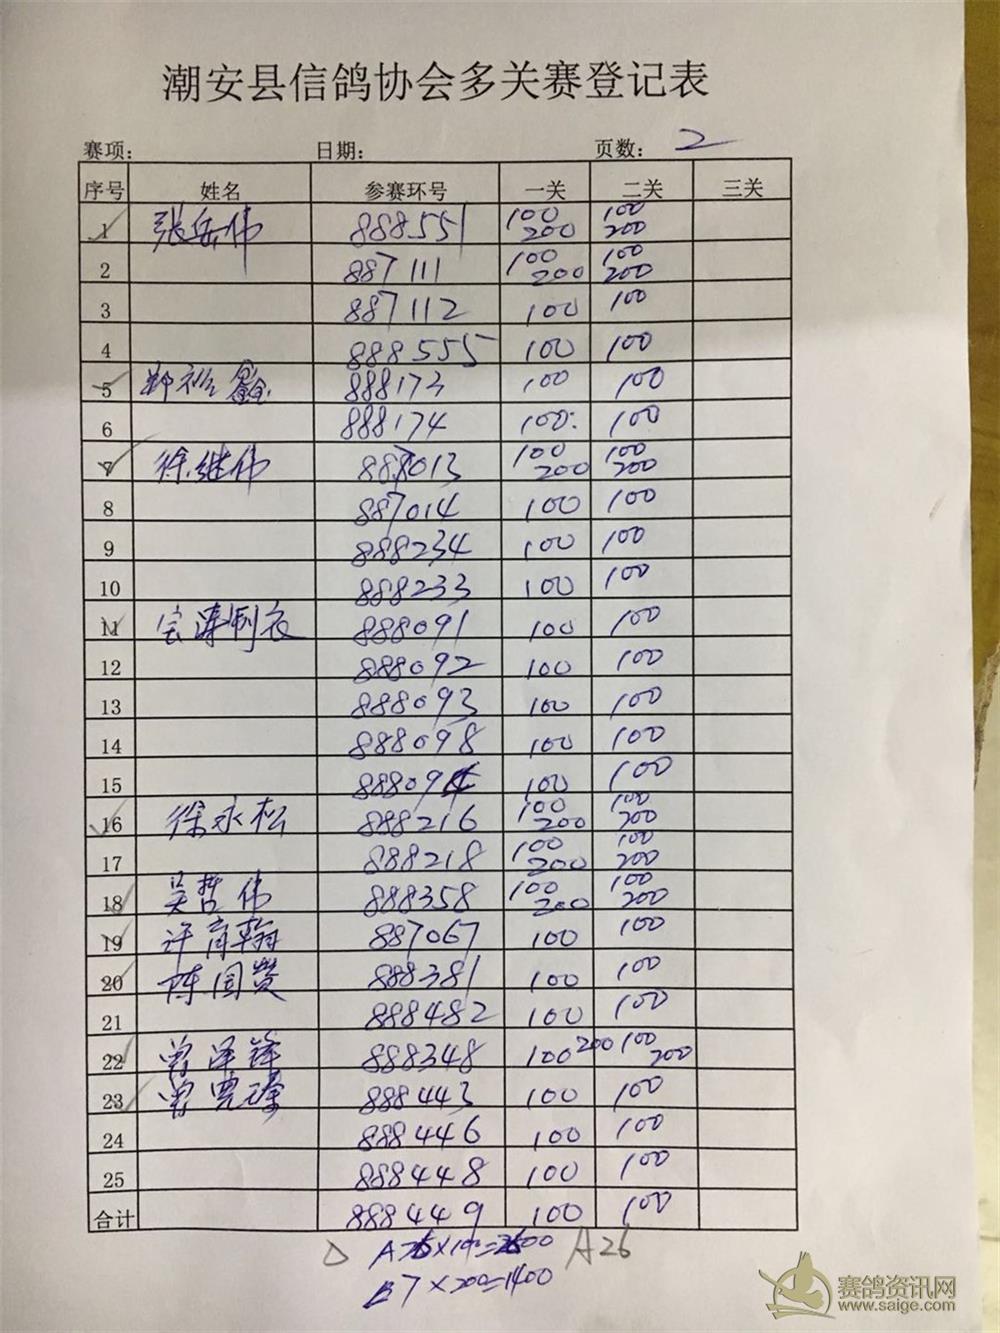 潮安县信鸽协会多关赛登记表
赛项: 日期: 页数: 2
序号 姓名 参赛环号 一关 二关 三关
1 张岳伟 888551 100 200 100 200
2 887111 100 200 100 200
3 887112 100 100
4 888555 100 100
5 郑裕鑫 888173 100 100
6 888174 100 100
7 徐继伟 888013 100 200 100 200
8 887014 100 100
9 888234 100 100
10 888233 100 100
11 宝涛制衣 888091 100 100
12 888092 100 100
13 888093 100 100
14 888098 100 100
15 88809 100 100
16 徐永松 888216 100 200 100 200
17 888218 100 200 100 200
18 吴哲伟 888358 100 200 100 200
19 许育翰 887067 100 100
20 陈国贤 888381 100 100
21 888482 100 100
22 曾泽锋 888348 100 200 100 200
23 曾 888443 100 100
24 888446 100 100
25 888448 100 100
合计 888449 100 100
A26×100=2600 A26
B7×200=1400
赛鸽资讯网
www.saige.com